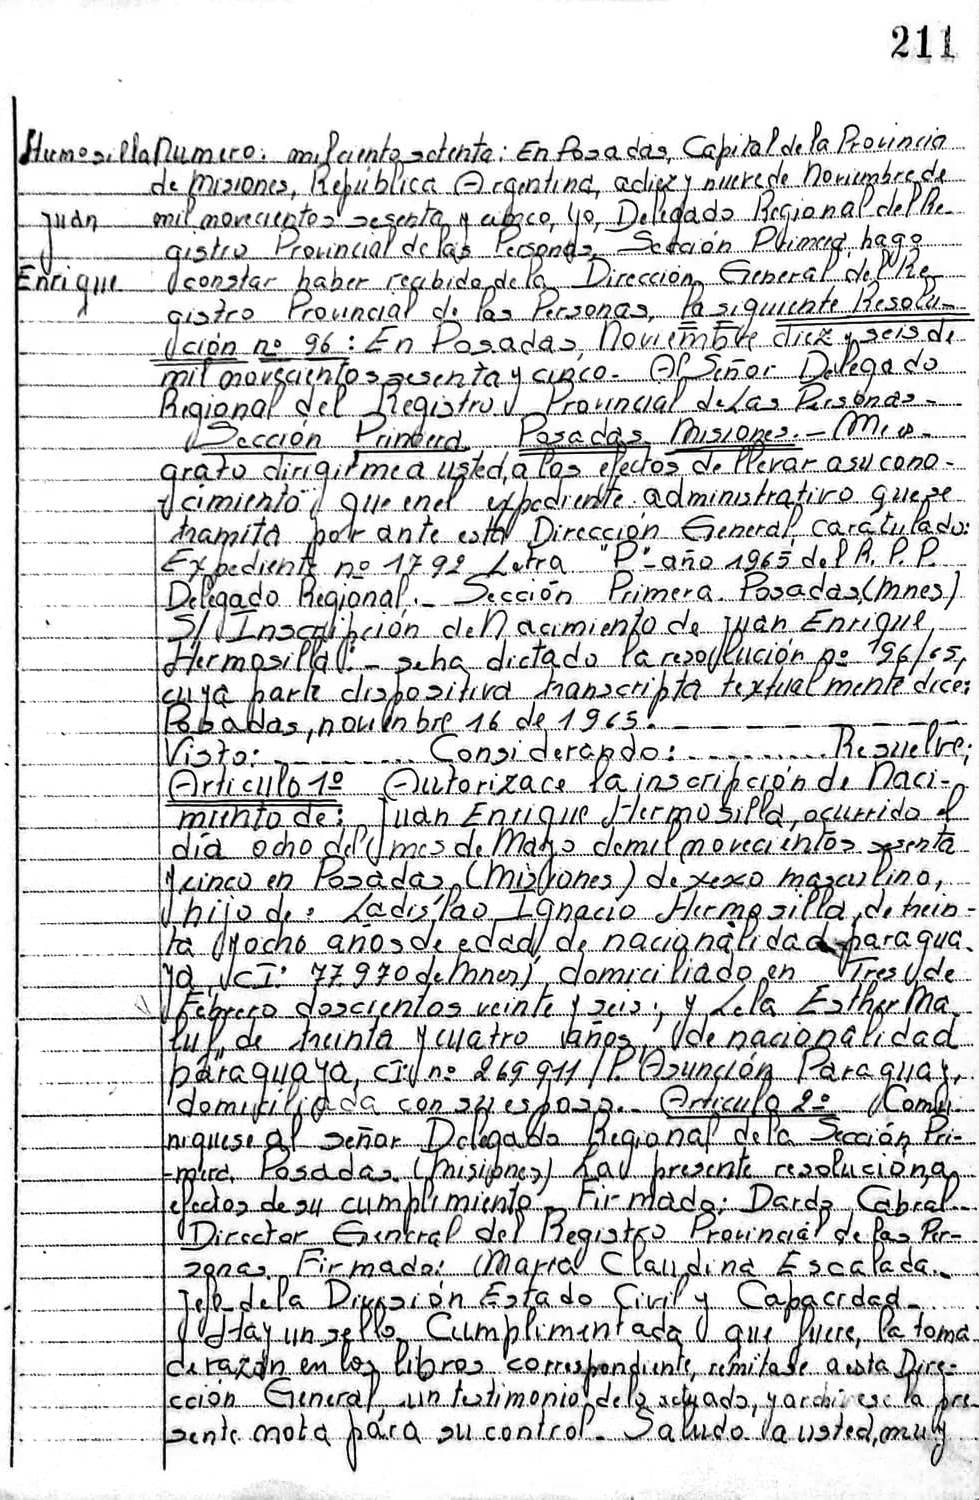 211
Humosilla Numero: mil ciento setenta: En Posadas, Capital de la Provincia
de Misiones, República Argentina, a diez y nueve de Noviembre de
Juan mil novecientos sesenta y cinco, yo, Delegado Regional del Re-
gistro Provincial de las Personas, Sección Primera hago
Enrique constar haber recibido de la Dirección General del Re
gistro Provincial de las Personas, la siguiente Resolu-
ción nº 96: En Posadas, Noviembre diez y seis de
mil novecientos sesenta y cinco - Al Señor Delegado
Regional del Registro Provincial de Las Personas -
Sección Primera Posadas Misiones. - Me es
grato dirigirme a usted, a los efectos de llevar a su cono-
cimiento que en el expediente administrativo que se
tramita por ante esta Dirección General, carátulado:
Expediente nº 1792 Letra "P" - año 1965 del R. P. P.
Delegado Regional. - Sección Primera. Posadas, (Mnes)
S/ Inscripción de Nacimiento de Juan Enrique
Hermosilla: - se ha dictado la resolución nº 96/65,
cuya parte dispositiva transcripta textualmente dice:
Posadas, noviembre 16 de 1965.
Visto: Considerando: Resuelve;
Articulo 1º Autorizace la inscripción de Naci-
miento de: Juan Enrique Hermosilla, ocurrido el
día ocho del mes de Mayo de mil novecientos sesenta
y cinco en Posadas, (Misiones) de sexo masculino,
hijo de: Ladislao Ignacio Hermosilla, de trein-
ta y ocho años de edad, de nacionalidad paragua-
ya, CI: 77970 de Mnes, domiciliado en Tres de
Febrero doscientos veinte y seis; y Lela Esther Ma
luf, de treinta y cuatro años, de nacionalidad
paraguaya, CI nº 269911 / P. Asunción Paraguay,
domiciliada con su esposo. - Articulo 2º Comu
niquese al señor Delegado Regional de la Sección Pri-
mera. Posadas (Misiones) La presente resolución, a
efectos de su cumplimiento. Firmado: Dardo Cabral
Director General del Registro Provincial de las Per-
sonas. Firmado: María Claudina Escalada.
Jefe de la División Estado Civil y Capacidad -
Hay un sello. Cumplimentada que fuere, la toma
de razón en los libros correspondiente, remitase a esta Dire-
cción General, un testimonio de lo actuado, y archivese la pre-
sente nota para su control - Saludo a usted, muy